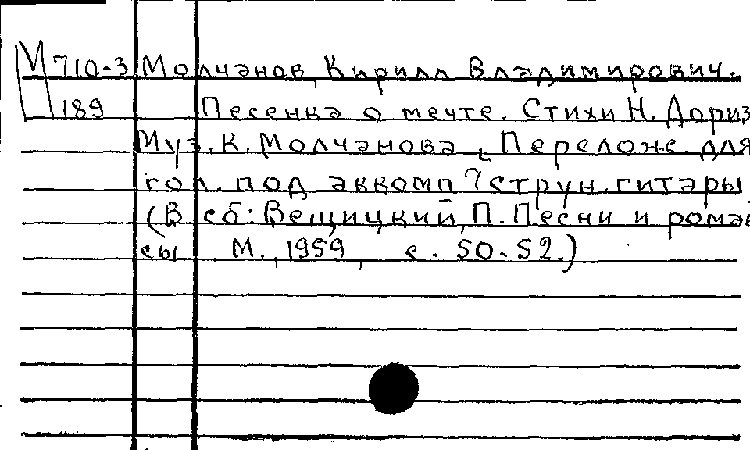 М 710-3 Молчанов, Кирилл Владимирович.
189 Песенка о мечте. Стихи Н. Дориз
Муз. К. Молчанова, Перелож для
гол. под аккомп 7 струн. гитары
(В сб: Вещицкий, П. Песни и роман
сы М., 1959, с. 50-52.)